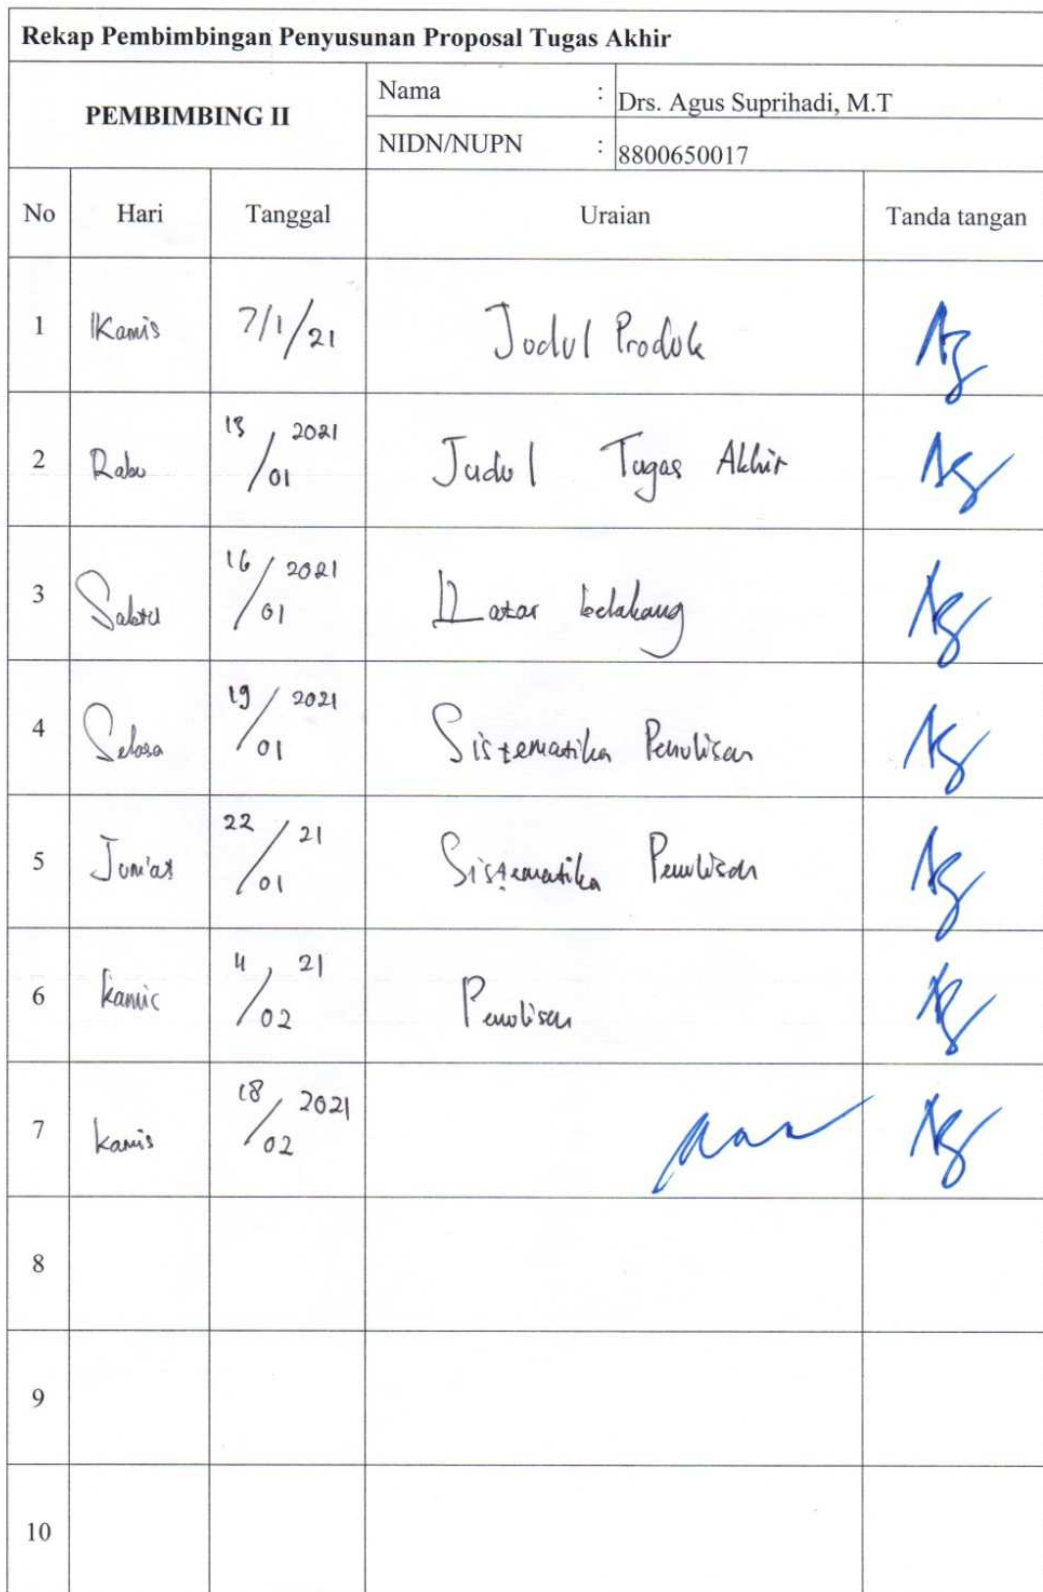 Rekap Pembimbingan Penyusunan Proposal Tugas Akhir
PEMBIMBING II
Nama : Drs. Agus Suprihadi, M.T
NIDN/NUPN : 8800650017
No Hari Tanggal Uraian Tanda tangan
1 Kamis 7/1/21 Judul Produk
2 Rabu 13/01 2021 Judul Tugas Akhir
3 Sabtu 16/01 2021 Latar belakang
4 Selasa 19/01 2021 Sistematika Penulisan
5 Jum'at 22/01 21 Sistematika Penulisan
6 kamis 4/02 21 Penulisan
7 kamis 18/02 2021
8
9
10